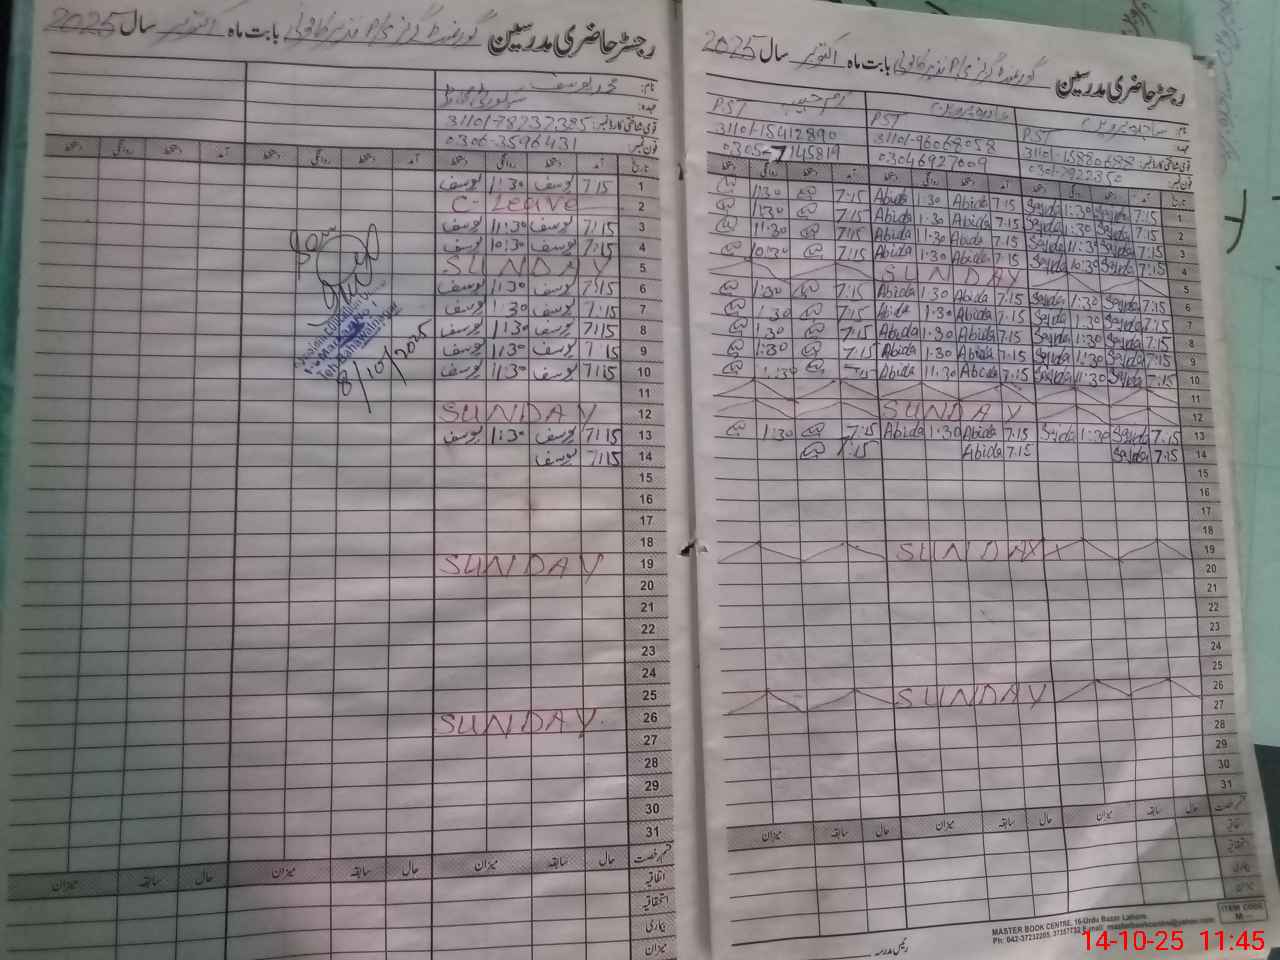 رجسٹر حاضری مدرسین گورنمنٹ گرلز P/S نذیر کالونی بابت ماہ اکتوبر سال 2025
نام: محمد یوسف
عہدہ:
قومی شناختی کارڈ نمبر:
فون نمبر: 0306-3596431
تاریخ آمد دستخط روانگی دستخط آمد دستخط روانگی دستخط آمد دستخط روانگی دستخط
1 7:15 یوسف 1:30 یوسف
2 C-Leave
3 7:15 یوسف 11:30 یوسف
4 7:15 یوسف 10:30 یوسف
5 SUNDAY
6 7:15 یوسف 11:30 یوسف
7 7:15 یوسف 1:30 یوسف
8 7:15 یوسف 11:30 یوسف
9 7:15 یوسف 1:30 یوسف
10 7:15 یوسف 11:30 یوسف
11
12 SUNDAY
13 7:15 یوسف 1:30 یوسف
14 7:15 یوسف
15
16
17
18
19 SUNDAY
20
21
22
23
24
25
26 SUNDAY
27
28
29
30
31
8/10/2025
قسم رخصت حال سابقہ میزان حال سابقہ میزان حال سابقہ میزان
اتفاقیہ
استحقاقیہ
بیماری
میزان
رجسٹر حاضری مدرسین گورنمنٹ گرلز P/S نذیر کالونی بابت ماہ اکتوبر سال 2025
نام: ساجدہ پروین عابدہ پروین
عہدہ: PST PST PST
قومی شناختی کارڈ نمبر: 31101-15880688 31101-96068058 31101-15412890
فون نمبر: 0301-7922350 03046927009 0305-7145819
تاریخ آمد دستخط روانگی دستخط آمد دستخط روانگی دستخط آمد دستخط روانگی دستخط
1 7:15 Sajida 1:30 Sajida 7:15 Abida 1:30 Abida 7:15 1:30
2 7:15 Sajida 11:30 Sajida 7:15 Abida 1:30 Abida 7:15 1:30
3 7:15 Sajida 11:30 Sajida 7:15 Abida 11:30 Abida 7:15 11:30
4 7:15 Sajida 10:30 Sajida 7:15 Abida 1:30 Abida 7:15 10:30
5 SUNDAY
6 7:15 Sajida 1:30 Sajida 7:15 Abida 1:30 Abida 7:15 1:30
7 7:15 Sajida 1:30 Sajida 7:15 Abida 1:30 Abida 7:15 1:30
8 7:15 Sajida 1:30 Sajida 7:15 Abida 1:30 Abida 7:15 1:30
9 7:15 Sajida 1:30 Sajida 7:15 Abida 1:30 Abida 7:15 1:30
10 7:15 Sajida 11:30 Sajida 7:15 Abida 11:30 Abida 7:15 1:30
11
12 SUNDAY
13 7:15 Sajida 1:30 Sajida 7:15 Abida 1:30 Abida 7:15 1:30
14 7:15 Sajida 7:15 Abida 7:15
15
16
17
18
19 SUNDAY
20
21
22
23
24
25
26 SUNDAY
27
28
29
30
31
قسم رخصت حال سابقہ میزان حال سابقہ میزان حال سابقہ میزان
اتفاقیہ
استحقاقیہ
بیماری
میزان
ITEM CODE
MASTER BOOK CENTRE, 16-Urdu Bazar Lahore
Ph: 042-37232205, 37357732 E-mail: masterbookcentre@yahoo.com
رئیس مدرسہ
14-10-25 11:45